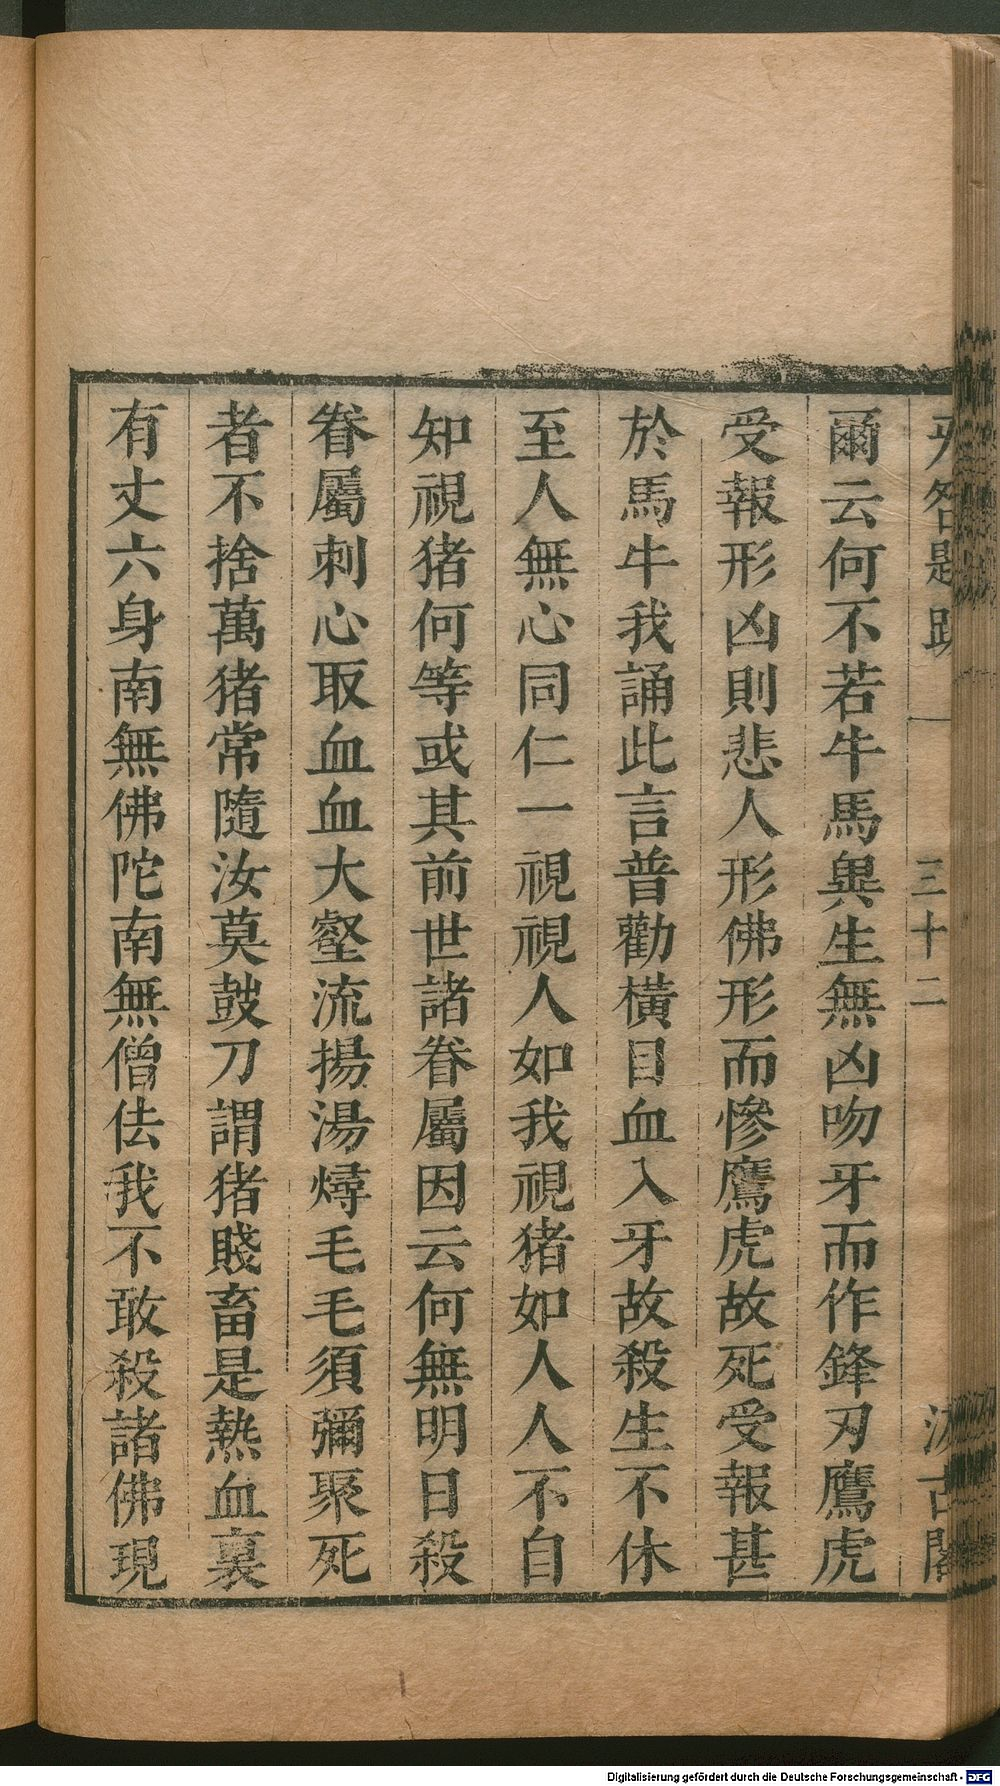 三十二
爾云何不若牛馬異生無凶吻牙而作鋒刃鷹虎
受報形凶則悲人形佛形而慘鷹虎故死受報甚
於馬牛我誦此言普勸橫目血入牙故殺生不休
至人無心同仁一視視人如我視猪如人人不自
知視猪何等或其前世諸眷屬因云何無明日殺
眷屬刺心取血血大壑流揚湯燖毛毛須彌聚死
者不捨萬猪常隨汝莫鼓刀謂猪賤畜是熱血裏
有丈六身南無佛陀南無僧佉我不敢殺諸佛現
Digitalisierung gefördert durch die Deutsche Forschungsgemeinschaft - DFG